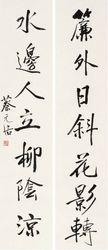 簾外日斜花影轉
水邊人立柳陰涼
蔡元培